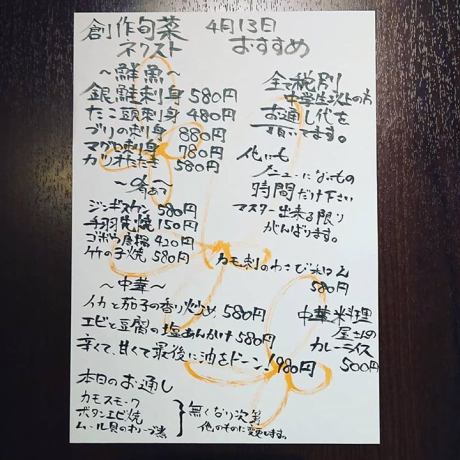 創作旬菜
ネクスト
4月13日
おすすめ
〜鮮魚〜
銀鮭刺身 580円
たこ頭刺身 480円
ブリの刺身 880円
マグロ刺身 780円
カツオたたき 580円
全て税別
中学生以上の方
お通し代を
頂いてます。
他にも
メニューにないもの
時間だけ下さい
マスター出来る限り
がんばります。
〜肴あて〜
ジンギスカン 580円
手羽先焼 150円
ゴボウ唐揚 420円
竹の子焼 580円
カモ刺のわさび和え
580円
〜中華〜
イカと茄子の香り炒め 580円
エビと豆腐の塩あんかけ 580円
辛くて、甘くて最後に油をドーン! 980円
中華料理
屋さんの
カレーライス
500円
本日のお通し
カモスモーク
ボタンエビ焼
ムール貝のオリーブ煮
無くなり次第
他のものに変更します。